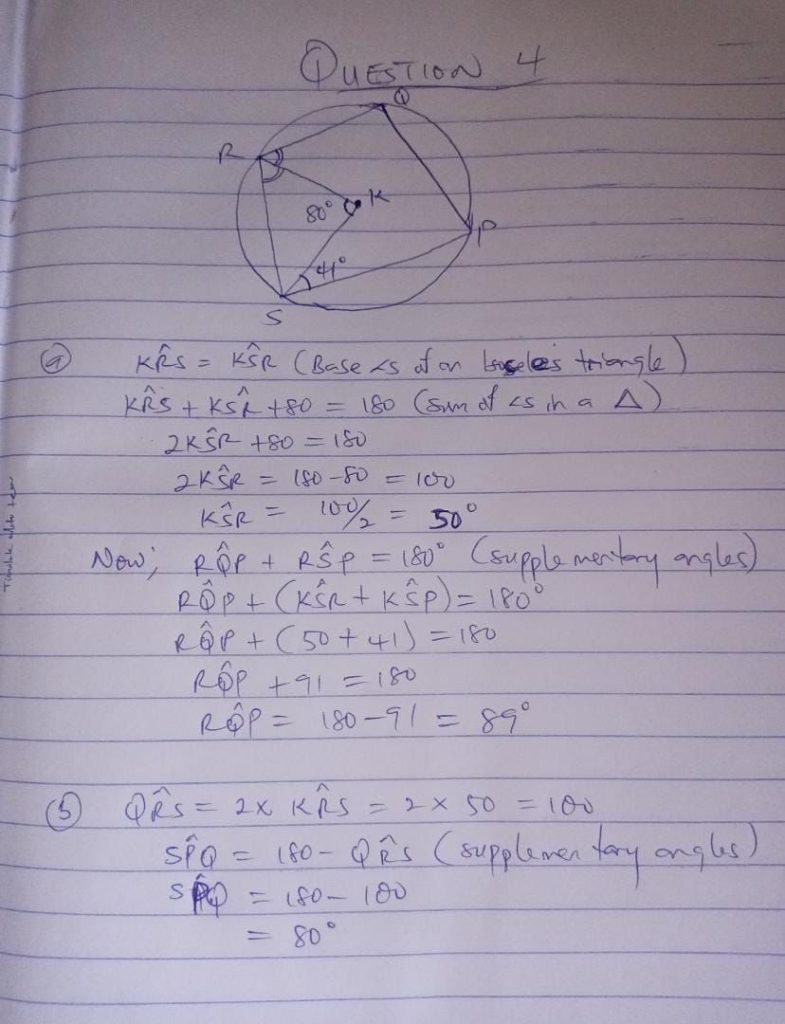 QUESTION 4
Q
R
K
80°
P
41°
S
(a) KR̂S = KŜR (Base <s of an Isosceles triangle)
KR̂S + KŜR + 80 = 180 (Sum of <s in a Δ)
2KŜR + 80 = 180
2KŜR = 180 - 80 = 100
KŜR = 100/2 = 50°
Now; RQ̂P + RŜP = 180° (supplementary angles)
RQ̂P + (KŜR + KŜP) = 180°
RQ̂P + (50 + 41) = 180
RQ̂P + 91 = 180
RQ̂P = 180 - 91 = 89°
(b) QR̂S = 2 x KR̂S = 2 x 50 = 100
SP̂Q = 180 - QR̂S (supplementary angles)
SP̂Q = 180 - 100
= 80°